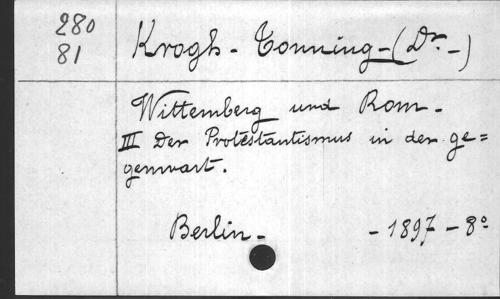 280
81
Krogh - Tonning - (Dr. -)
Wittemberg und Rom -
III Der Protestantismus in der ge=
genwart.
Berlin - - 1897 - 8º